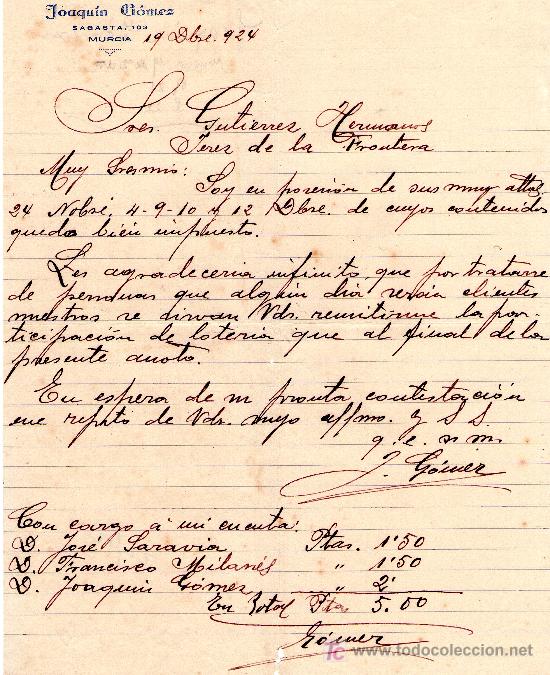 Joaquín Gómez
SAGASTA, 103
MURCIA
19 Dbre. 924
Sres. Gutierrez Hermanos
Jerez de la Frontera
Muy Sres mios:
Soy en posesión de sus muy attas
24 Nobre. 4-9-10 y 12 Dbre. de cuyos contenidos
quedo bien impuesto.
Les agradeceria infinito, que por tratarse
de personas que algún dia serán clientes
nuestros se sirvan Vds. remitirme la par-
ticipación de loteria que al final de la
presente anoto.
En espera de su pronta contestación
me repito de Vds. suyo affmo. y S. S.
q. e. s. m.
J. Gómez
Con cargo á mi cuenta:
D. José Saravia Ptas. 1'50
D. Francisco Milanés " 1'50
D. Joaquín Gómez " 2'
En Total Pta 5.00
Gómez
tc www.todocoleccion.net